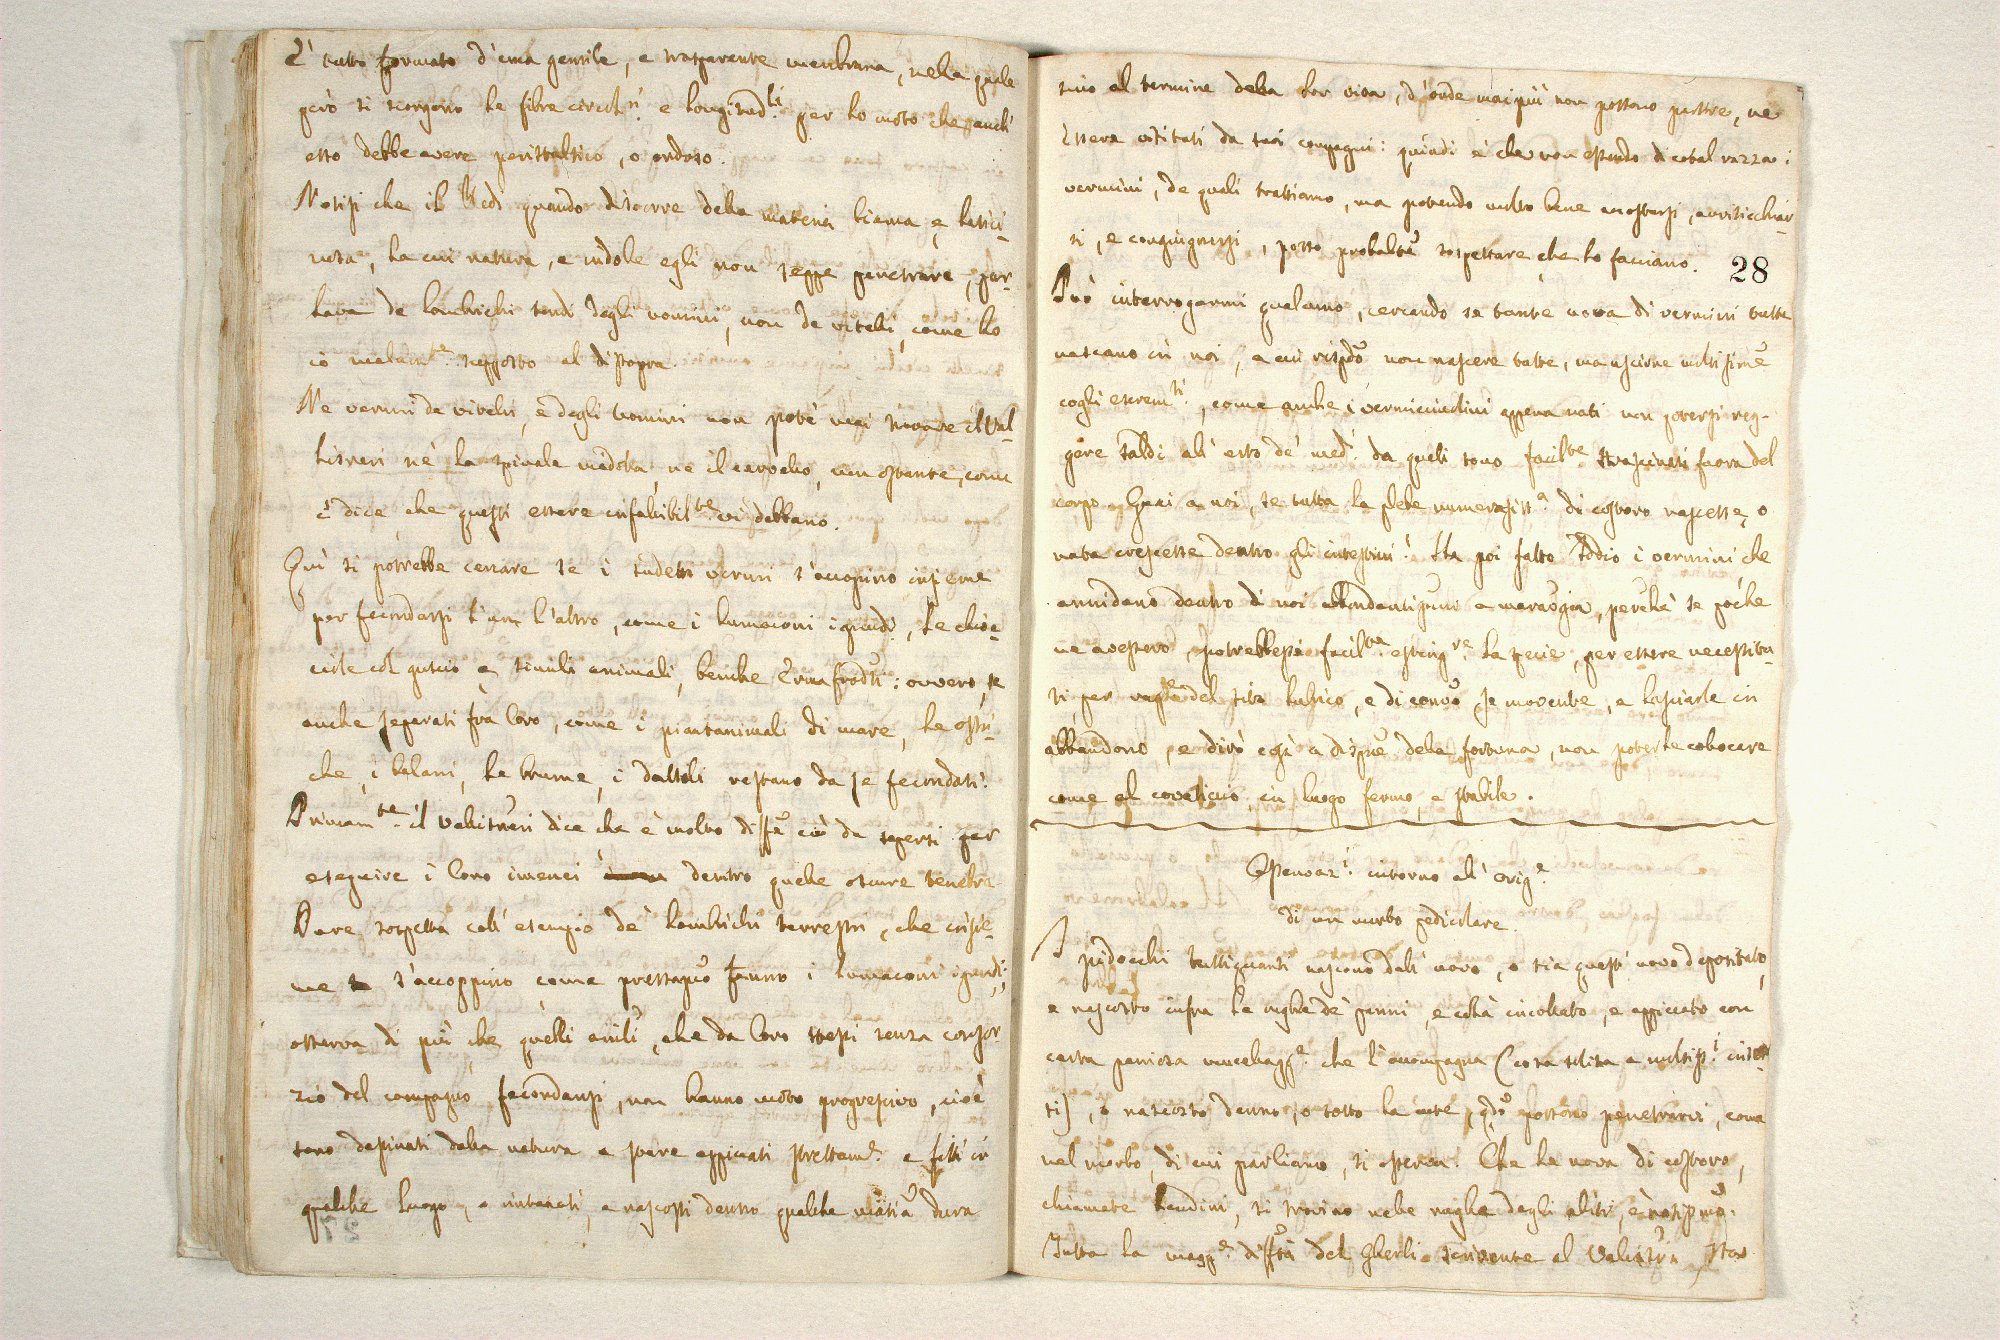 È tutto formato d'una gentile, e trasparente membrana, nella quale
però si scorgono le fibre circol.ri e longitud.li per lo moto che anch'
esso debbe avere peristaltico, o ondoso.
Notisi che il Redi quando discorre della materia bianca e latici-
nosa, la cui natura, e indole egli non seppe penetrare, par-
lava de lombrichi tondi degli uomini, non de vitelli, come ho
io malam.te supposto al di sopra.
Ne vermi de vitelli, e degli uomini non potè mai trovare il Val-
lisneri nè la spinale medolla, ne il cervello, non ostante, come
e' dice che questi essere infallibil.te vi debbano.
Quì si potrebbe cercare se i sudetti vermi s'accopino insieme
per fecondarsi l'un l'altro, come i lumaconi ignudi, le chioc-
ciole col guscio e simili animali, benche Ermafroditi: ovvero, se
anche separati fra loro, come i piantanimali di mare, le ostri-
che, i balani, le brume, i dattoli restano da se fecondati.
Primam.te il Vallisneri dice che è molto diff.e ciò da sapersi per
eseguire i loro imenei dentro quelle oscure tenebre
Pure sospetta coll' esempio de' lombrichi terrestri, che insie-
me s'accoppino come fanno i lumaconi ignudi;
osserva di più che quelli animali, che da loro stessi senza consor-
zio del compagno fecondansi, non hanno moto progressivo, cioè
sono destinati dalla natura a stare appiccati strettam.e e fitti in
qualche luogo, o intanati, e nascosti dentro qualche materia dura
sino al termine della lor vita, d'onde mai più non possono partire, ne
essere visitati da suoi compagni: quindi è che non essendo di cotal razza i
vermini, de quali trattiamo, ma potendo molto bene accostarsi, avviticchiar-
si, e congiugnersi, posso probabilm.e sospettare che lo facciano.
28
Può interrogarmi qualcuno, cercando se tante uova di vermini tutte
nascano in noi, a cui rispdo non nascere tutte, ma uscirne moltissime
cogli escrem.ti, come anche i vermicciuolini appena nati non potersi reg-
gere saldi all' urto de' med.i da quelli sono facil.te strascinati fuora del
corpo. Guai a noi, se tutta la plebe numerosiss.a di costoro nascesse, o
nata crescesse dentro gli intestini! Ha poi fatto Iddio i vermini che
annidano dentro di noi abbondantissimi a maraviglia, perchè se poche
ne avessero, potrebbesi facil.te esting.re la specie, per essere necessita-
ti per del sito lubrico, e di continuo se movente, a lasciarle in
abbandono, e dirò così a discrezione della fortuna, non poterle collocare
come al covaticcio in luogo fermo, e stabile.
Osservaz.i intorno all' orig.e
di un morbo pedicolare.
I pidocchi tuttiquanti nascono dall' uovo, o sia questi uovo depositato,
e nascosto infra le rughe de' panni, e colà incollato, e appiccato con
certa paniosa che l'accompagna (cosa solita a moltiss.i inset-
ti), o nascosto dentro, o sotto la cute, qdo possono penetrarvi, come
nel morbo, di cui parliamo, si osserva. Che le uova di costoro,
chiamate lendini, si trovino nelle rughe degli abiti, è notissimo.
Tutta la magg.e difficoltà del Gherli scrivente al Vallisneri sta